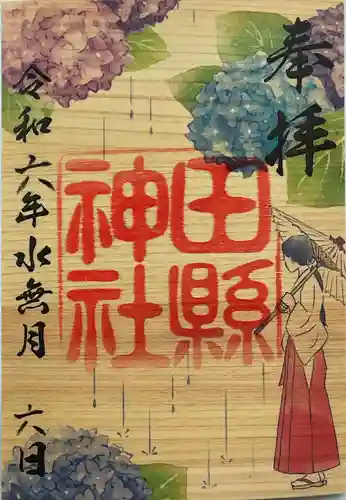 奉拝
田縣
神社
令和六年水無月 六日